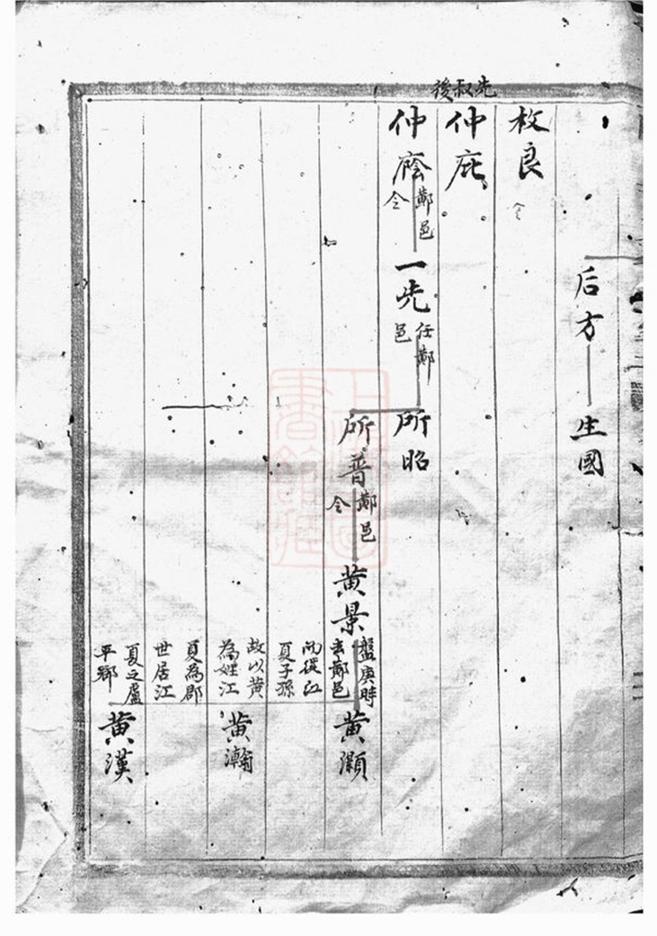 后方
生國
枚良
仲庇
先叔後
仲廕
鄰邑
令
一兂
任鄰
邑
所昭
所普
鄰邑
令
黃景
盤庚時
去鄰邑
而從江
夏子孫
故以黃
為姓江
夏為郡
世居江
夏之盧
平鄉
黃灝
黃瀚
黃漢